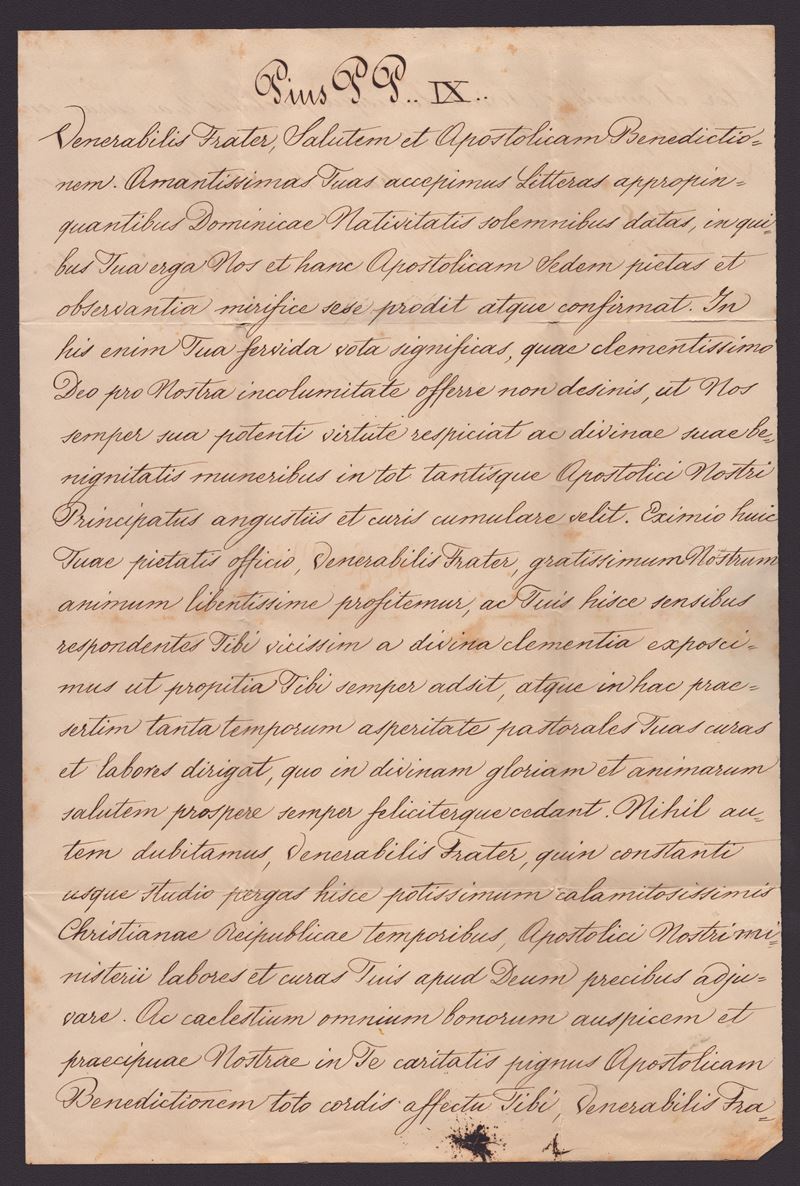 Pius PP.. IX..
Venerabilis Frater, Salutem et Apostolicam Benedictio=
nem. Amantissimas Tuas accepimus Litteras appropin=
quantibus Dominicae Nativitatis solemnibus datas, in qui=
bus Tua erga Nos et hanc Apostolicam Sedem pietas et
observantia mirifice sese prodit atque confirmat. In
his enim Tua fervida vota significas, quae clementissimo
Deo pro Nostra incolumitate offerre non desinis, ut Nos
semper sua potenti virtute respiciat ac divinae suae be=
nignitatis muneribus in tot tantisque Apostolici Nostri
Principatus angustiis et curis cumulare velit. Eximio huic
Tuae pietatis officio, Venerabilis Frater, gratissimum Nostrum
animum libentissime profitemur, ac Tuis hisce sensibus
respondentes Tibi vicissim a divina clementia exposci=
mus ut propitia Tibi semper adsit, atque in hac prae=
sertim tanta temporum asperitate pastorales Tuas curas
et labores dirigat, quo in divinam gloriam et animarum
salutem prospere semper feliciterque cedant. Nihil au=
tem dubitamus, Venerabilis Frater, quin constanti
usque studio pergas hisce potissimum calamitosissimis
Christianae Reipublicae temporibus, Apostolici Nostri mi=
nisterii labores et curas Tuis apud Deum precibus adju=
vare. Ac caelestium omnium bonorum auspicem et
praecipuae Nostrae in Te caritatis pignus Apostolicam
Benedictionem toto cordis affectu Tibi, Venerabilis Fra=